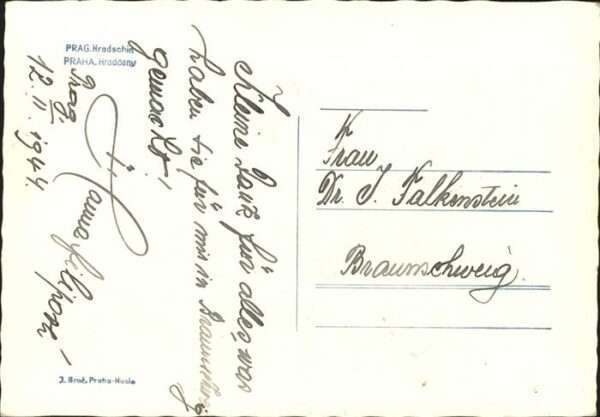 PRAG. Hradschin
PRAHA. Hradčany
Kleine Dank für alles, was
haben Sie für mir in Braunschweig
gemacht!
Prag,
12. II. 1944.
J. Bruč. Praha-Nusle
Fr
Frau
Dr. J. Falkenstein
Braunschweig.